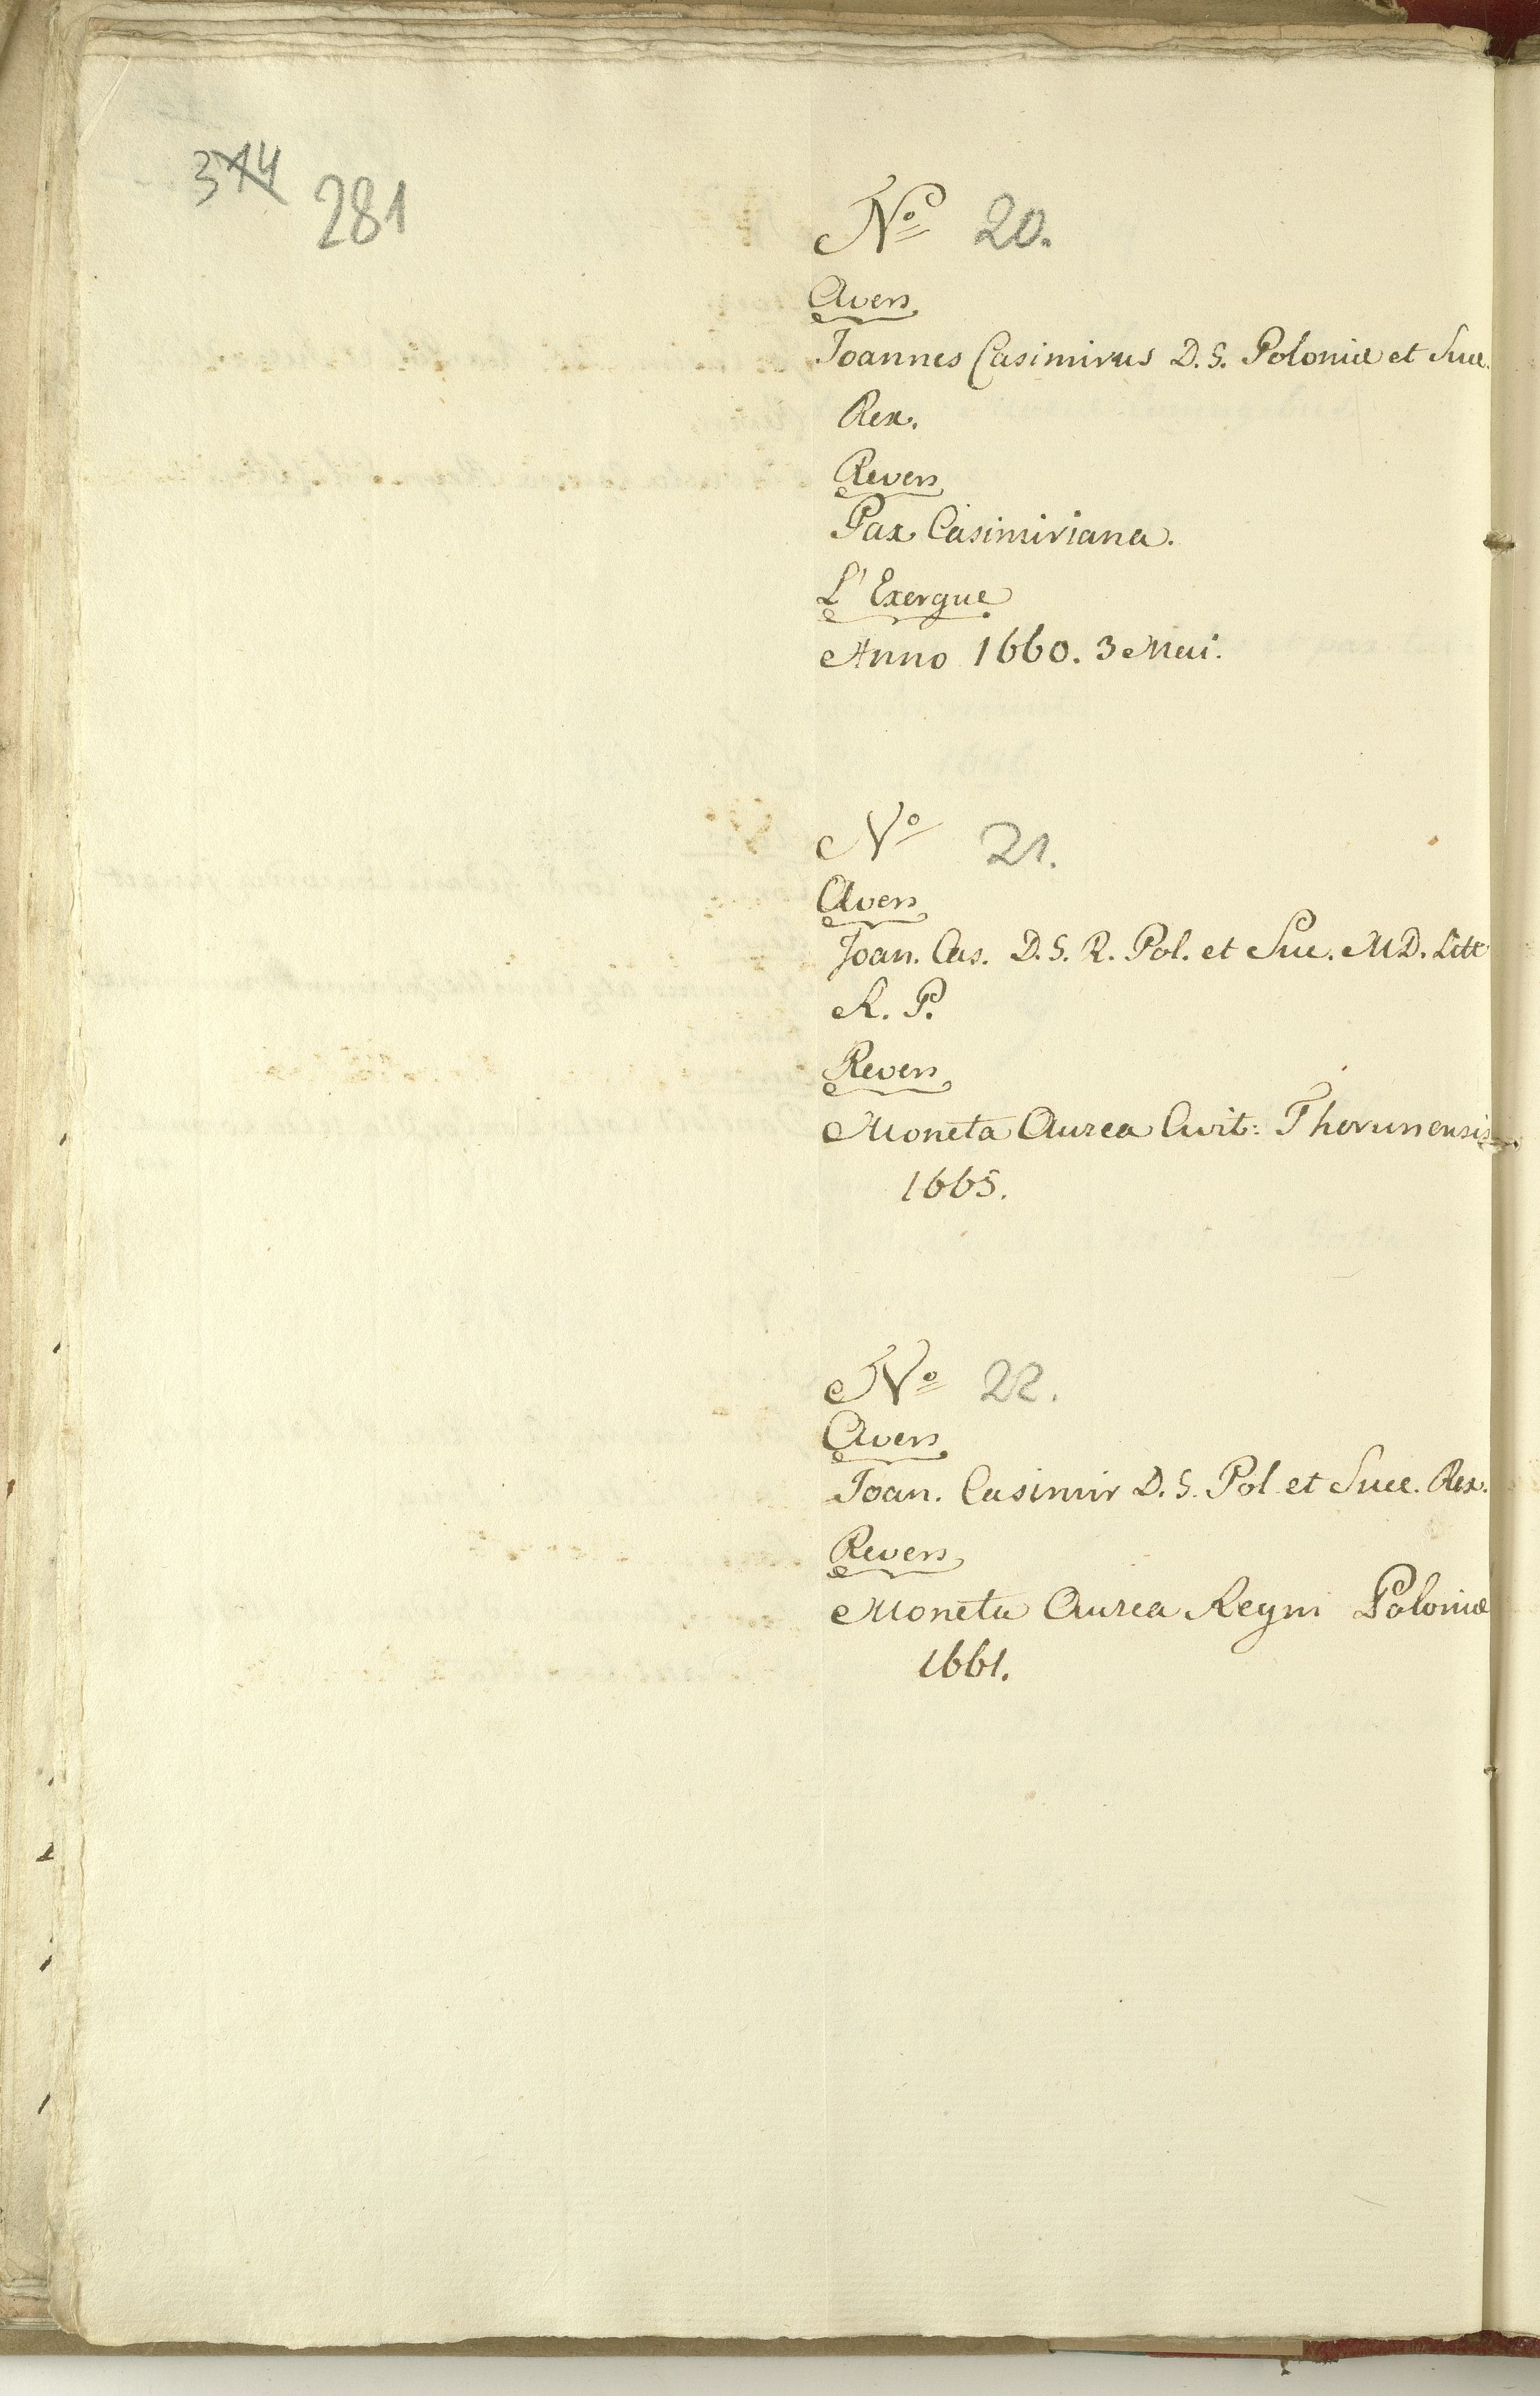 314 281
No 20.
Avers
Joannes Casimirus D. G. Poloniæ et Sue.
Rex.
Revers
Pax Casimiriana.
L'Exergue
Anno 1660. 3 Mai.
No 21.
Avers
Joan. Cas. D. G. R. Pol. et Sue. M D. Litt
R. P.
Revers
Moneta Aurea Civit: Thorunensis
1665.
No 22.
Avers
Joan. Casimir D. G. Pol. et Suec. Rex.
Revers
Moneta Aurea Regni Poloniæ
1661.